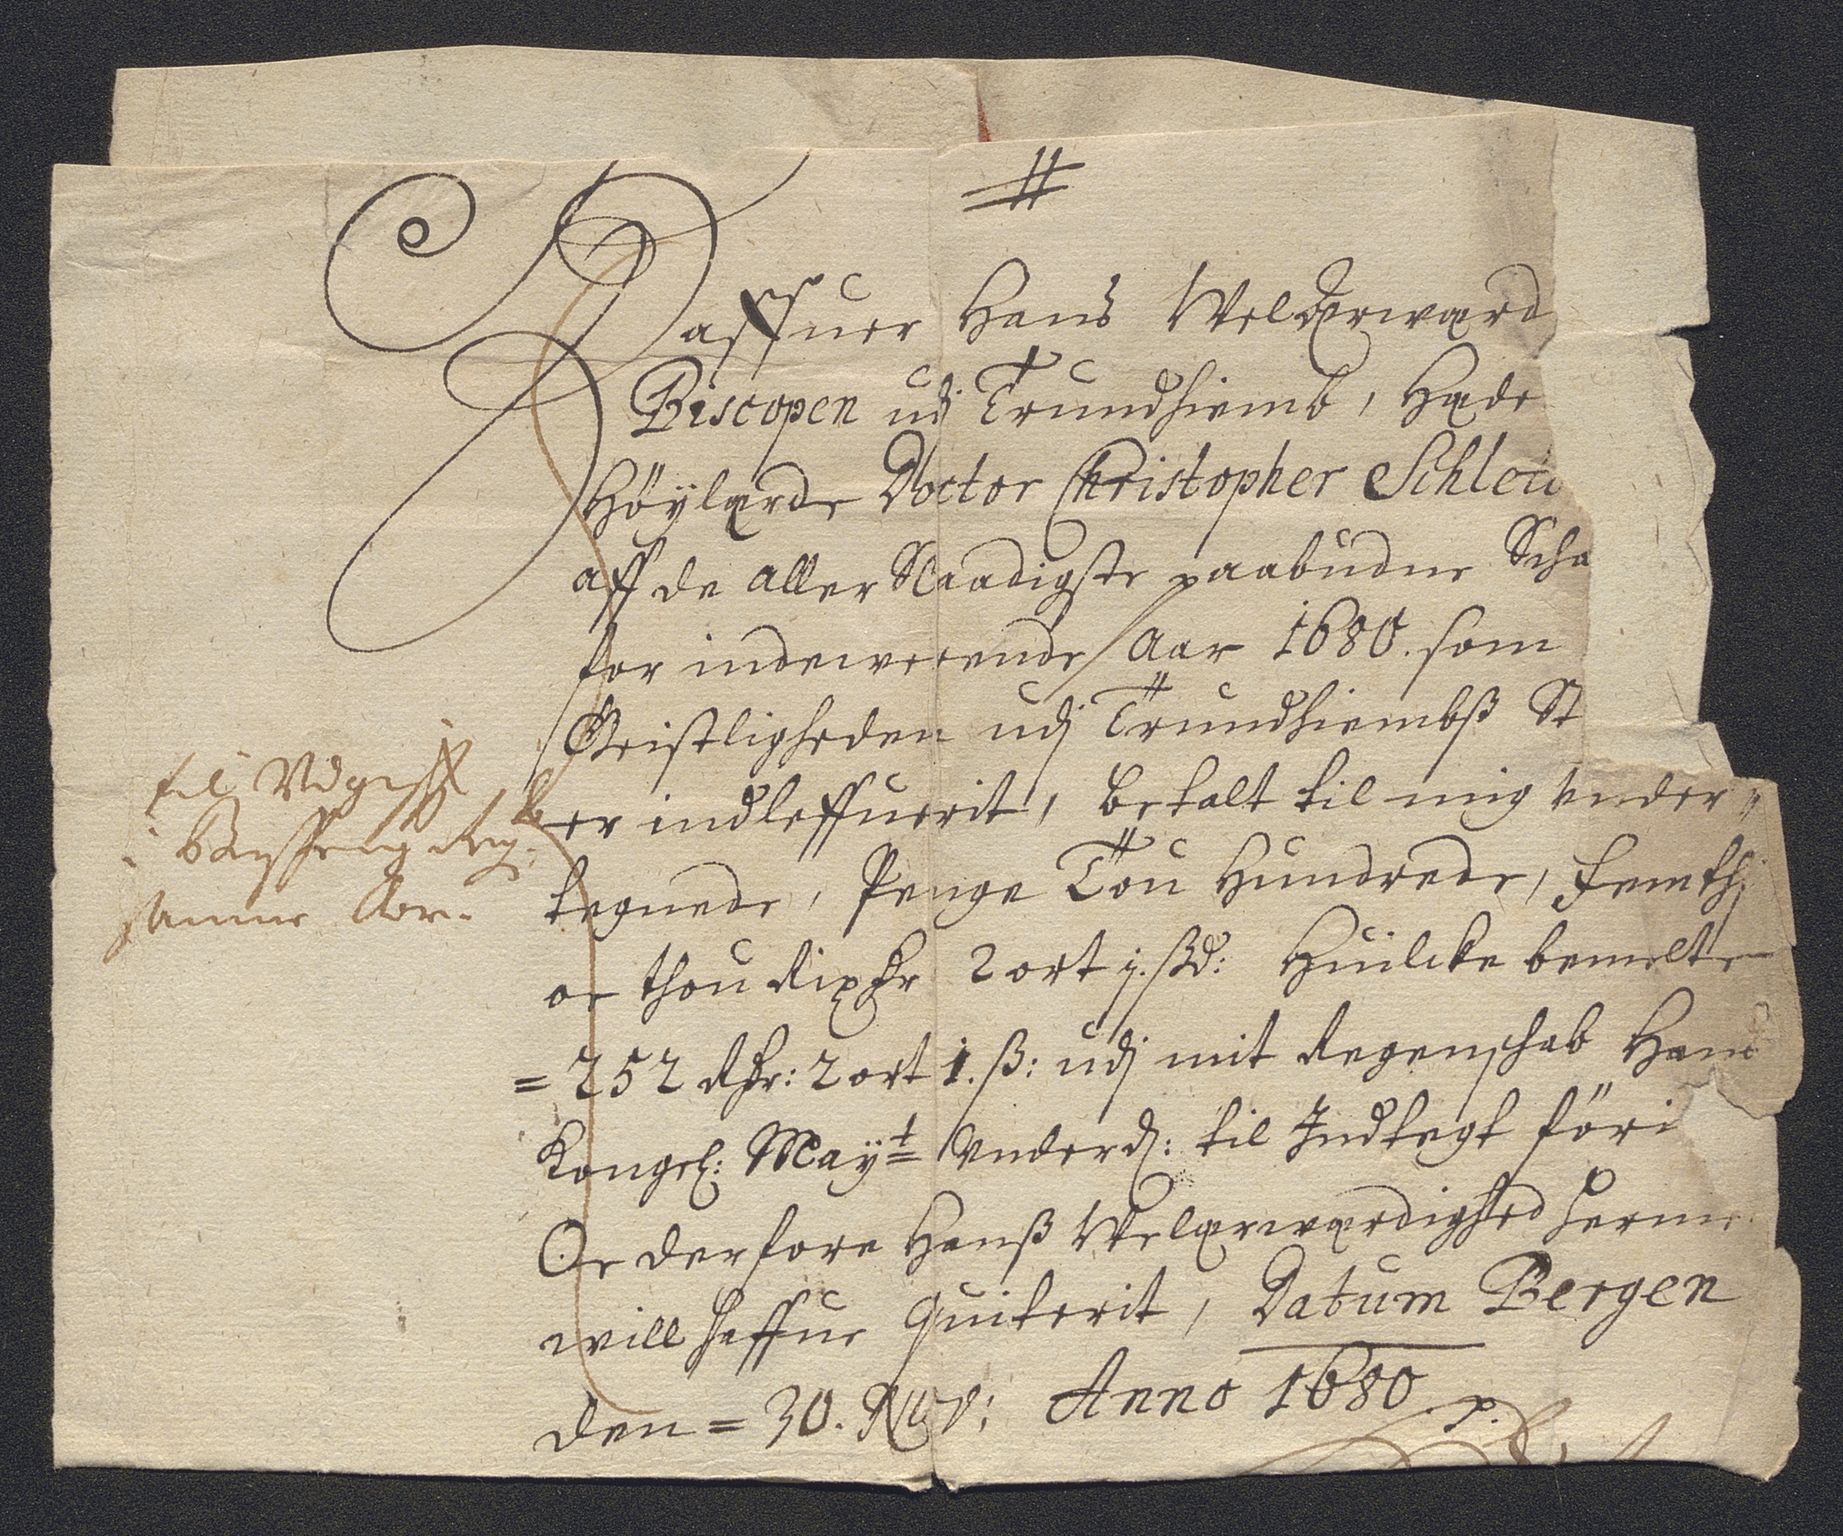 Haffuer Hans Welærværd
Biscopen udj Trundhiemb, Hæder
Höÿlærde Doctor Christopher Schlet
aff de aller Naadigste paabudne Scha
for indeværende Aar 1680. som
Geistligheden udj Trundhiembß St
er indleffuerit, betalt til mig under-
tegnede, Penge Tou Hundrede, femth
oc thou Rixdr 2 ort j. ßd: Huilcke bemelte
= 252 Rdr: 2 ort 1. ß: udj mit Regenschab Hans
Kongel: Mayt underd: til Indtegt föri
Oc derfore Hanß Welærværdighed herme
will haffue quiterit, Datum Bergen
den = 30. Nov: Anno 1680.
til Udgifft
i
samme Aar.